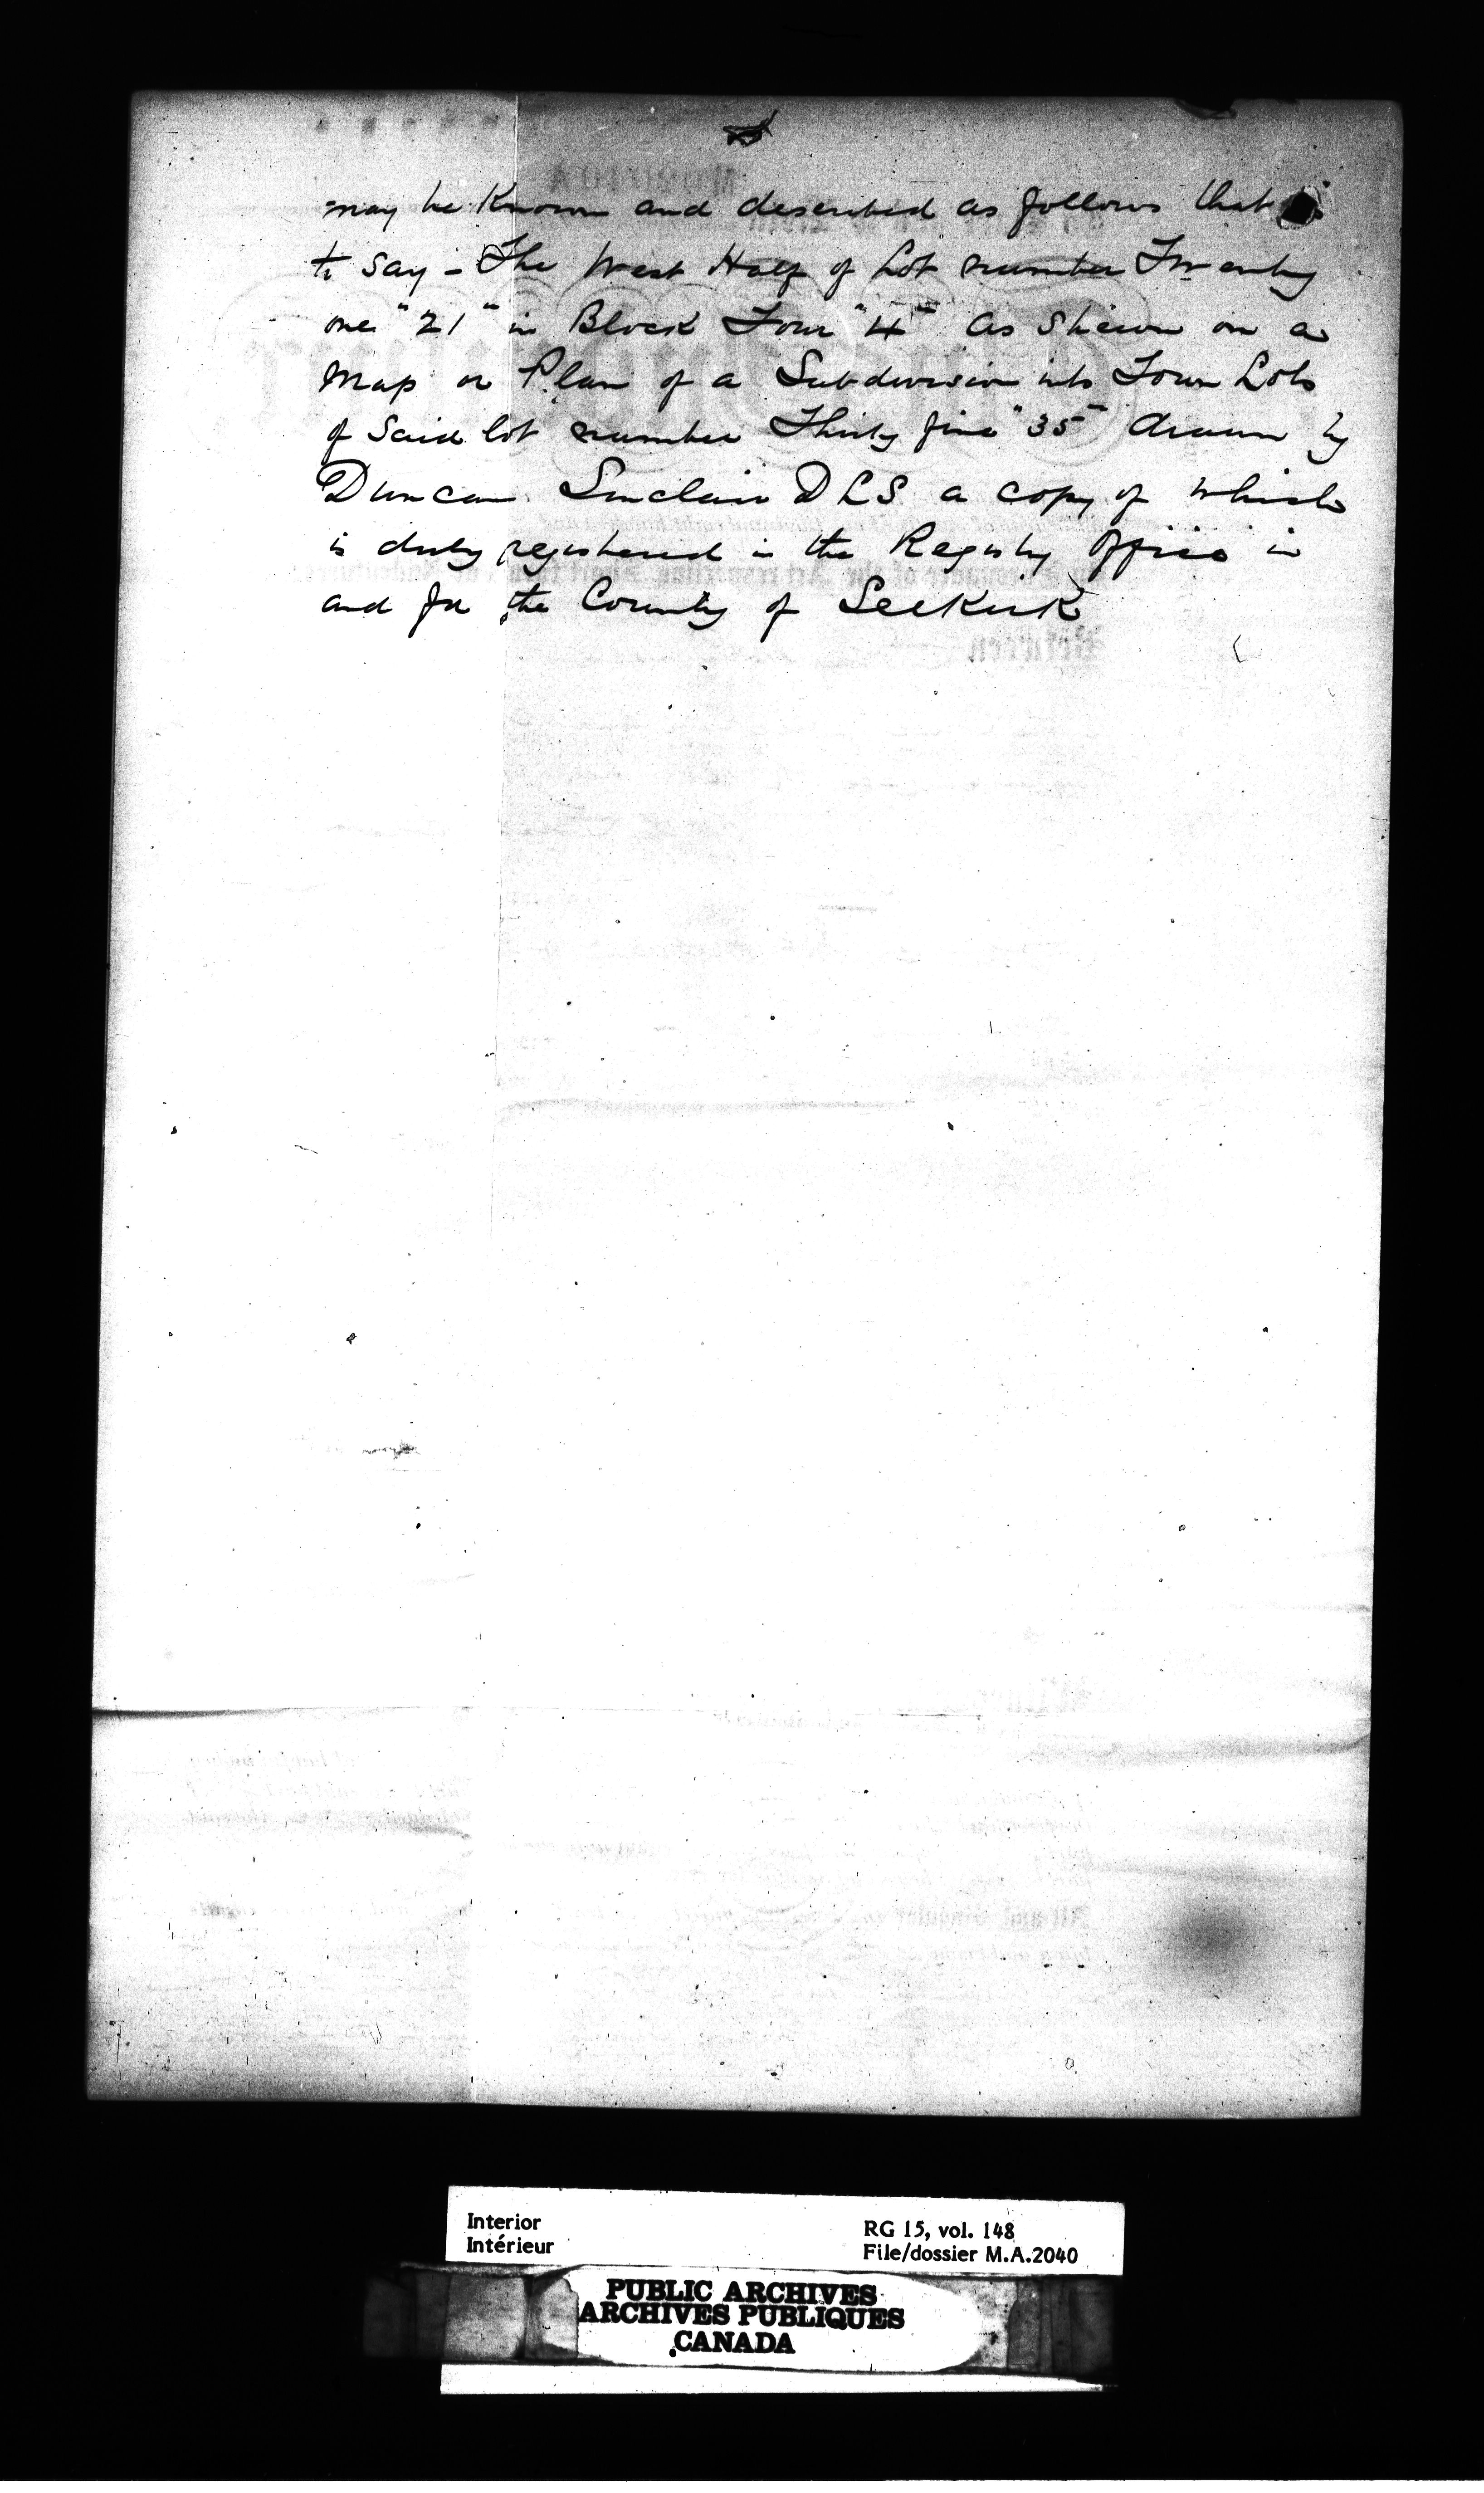 may be Known and described as follows that is
to say - The West Half of Lot number Twenty
one "21" in Block Four "4" as Shewn on a
Map or Plan of a Subdivision into Town Lots
of Said lot number Thirty five "35" drawn by
Duncan Sinclair D L S a copy of which
is duly registered in the Registry Office in
and for the County of Selkirk
Between
Interior
Intérieur
RG 15, vol. 148
File/dossier M.A.2040
PUBLIC ARCHIVES
ARCHIVES PUBLIQUES
CANADA